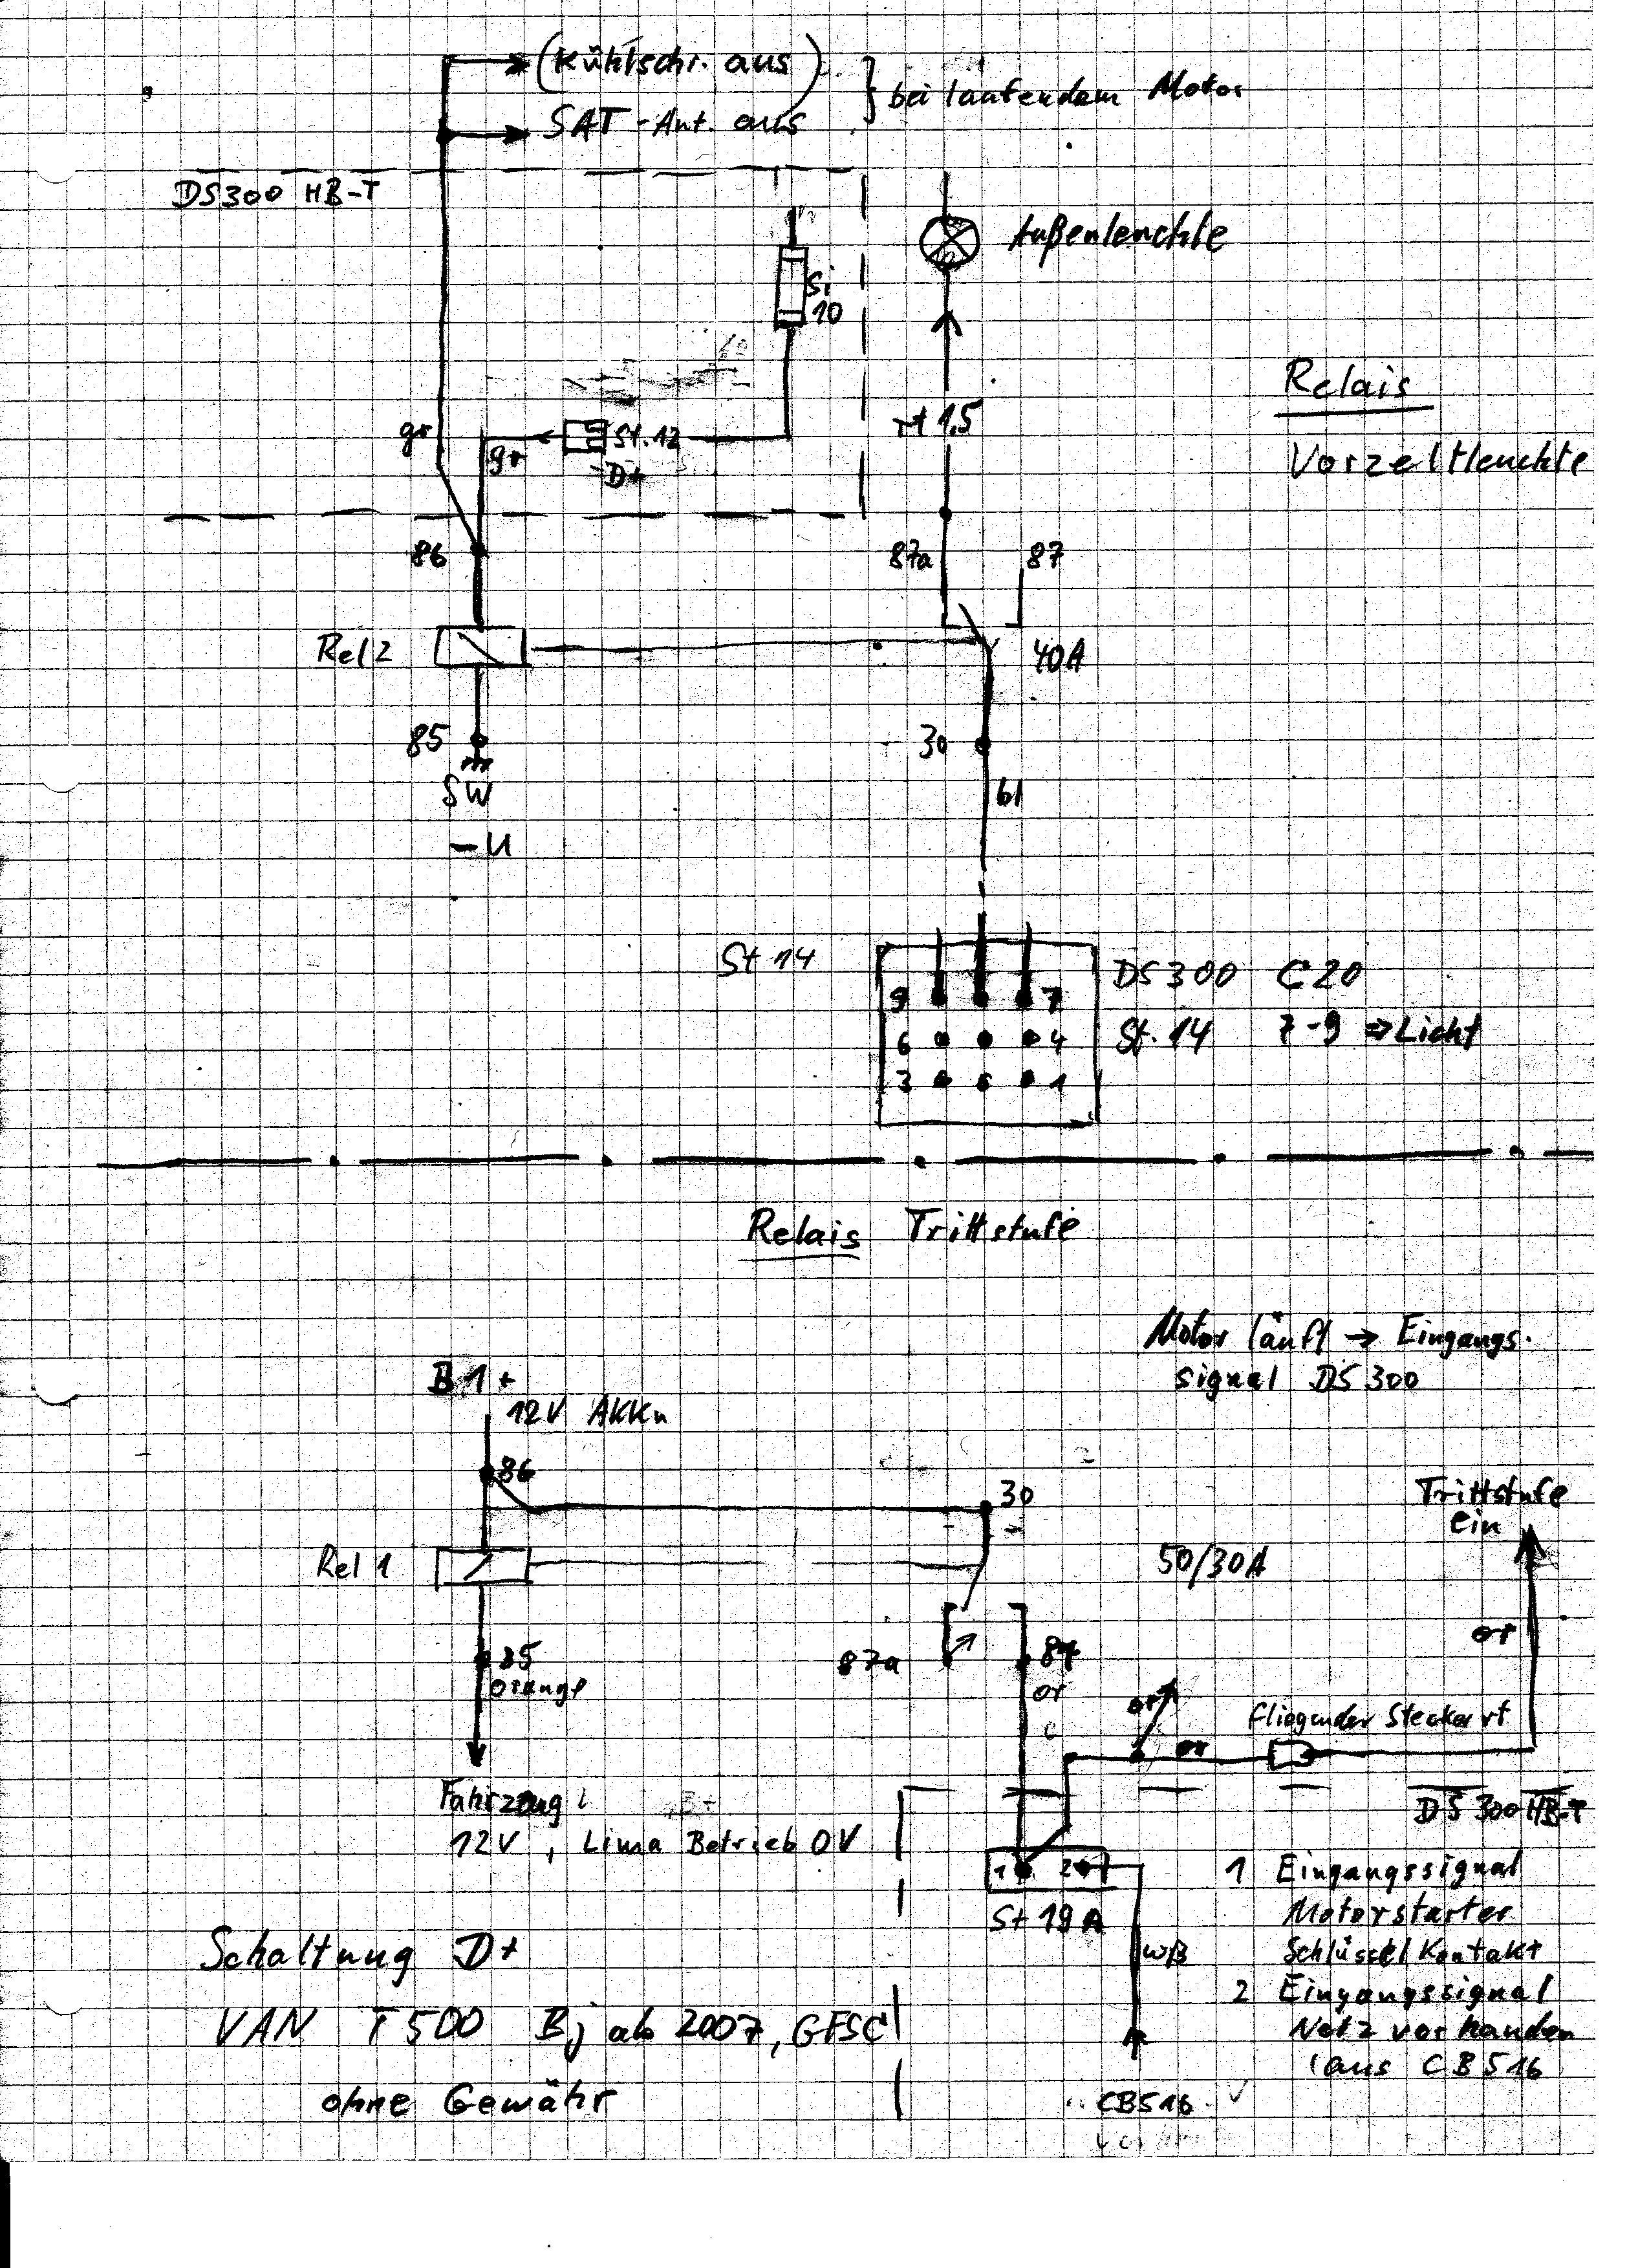 (Kühlschr. aus)
SAT-Ant. aus
} bei laufendem Motor
DS300 HB-T
Außenleuchte
Si
10
Relais
Vorzeltleuchte
gr
gr
St.12
-D+
rt 1,5
86
87a
87
Rel 2
40A
85
30
SW
-U
bl
St 14
9 7
6 4
3 1
DS300 C20
St. 14 7-9 ⇒ Licht
Relais Trittstufe
Motor läuft → Eingangs-
signal DS300
B1+
12V AKKu
86
30
Trittstufe
ein
Rel 1
50/30A
or
85
orange
87a
87
or
or
or
fliegender Steckert
Fahrzeug
12V, Lima Betrieb 0V
DS300 HB-T
1 2
St 19A
wß
1 Eingangssignal
Motorstarter
Schlüsselkontakt
2 Eingangssignal
Netz vorhanden
(aus CB516
Schaltung D+
VAN T500 Bj ab 2007, GFSC
ohne Gewähr
CB516